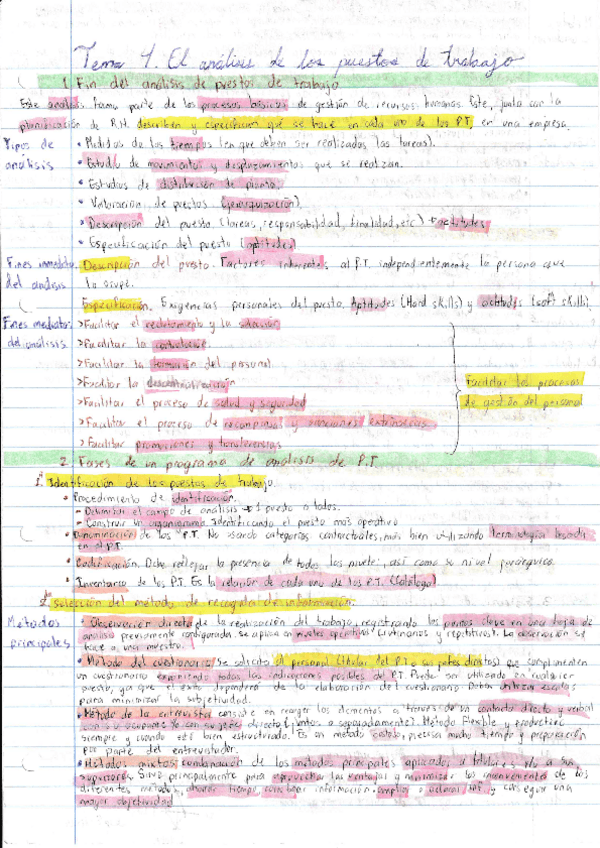 Tema 1. El análisis de los puestos de trabajo
1. Fin del análisis de puestos de trabajo
Este análisis forma parte de los procesos básicos de gestión de recursos humanos. Este, junto con la
planificación de R.H. describen y especifican qué se hace en cada uno de los P.T. en una empresa.
Tipos de análisis
• Medidas de los tiempos (en que deben ser realizadas las tareas).
• Estudio de movimientos y desplazamientos que se realizan.
• Estudios de distribución de planta.
• Valoración de puestos (jerarquización)
• Descripción del puesto (tareas, responsabilidad, finalidad, etc) actitudes
• Especificación del puesto (aptitudes)
Fines inmediatos del análisis
Descripción del puesto. Factores inherentes al P.T independientemente la persona que
lo ocupe.
Especificación. Exigencias personales del puesto. Aptitudes (Hard skills) y actitudes (soft skills).
Fines mediatos del análisis
> Facilitar el reclutamiento y la selección
> Facilitar la
> Facilitar la formación del personal
> Facilitar la
> Facilitar el proceso de salud y seguridad
> Facilitar el proceso de recompensas y sanciones extrínsecas
> Facilitar promociones y transferencias
Facilitar los procesos
de gestión del personal
2. Fases de un programa de análisis de P.T.
1ª Identificación de los puestos de trabajo.
• Procedimiento de identificación.
- Delimitar el campo de análisis → 1 puesto o todos.
- Construir un organigrama identificando el puesto más operativo
• Denominación de los P.T. No usando categorías contractuales, más bien utilizando terminología basada
en el P.T.
• Codificación. Debe reflejar la presencia de todos los niveles, así como su nivel jerárquico.
• Inventario de los P.T. Es la relación de cada uno de los P.T. (Catálogo)
2ª Selección del método de recogida de información.
Métodos principales
• Observación directa de la realización del trabajo, registrando los puntos clave en una hoja de
análisis previamente configurada. Se aplica en niveles operativos (rutinarios y repetitivos). La observación se
hace a una muestra.
• Método del cuestionario. Se solicita al personal (titular del P.T o sus jefes directos) que cumplimenten
un cuestionario examinando todas las indicaciones posibles del P.T. Puede ser utilizado en cualquier
puesto, ya que el éxito dependerá de la elaboración del cuestionario. Deben utilizar escalas
para minimizar la subjetividad.
• Método de la entrevista consiste en recoger los elementos a través de un contacto directo y verbal
con el ocupante o con su jefe directo (juntos o separadamente). Método flexible y productivo
siempre y cuando esté bien estructurado. Es un método costoso, precisa mucho tiempo y preparación
por parte del entrevistador.
• Métodos mixtos, combinación de los métodos principales aplicados a titulares y/o a sus
superiores. Sirve principalmente para aprovechar las ventajas y minimizar los inconvenientes de los
diferentes métodos, ahorrar tiempo, contrastar información, ampliar o aclarar y conseguir una
mayor objetividad